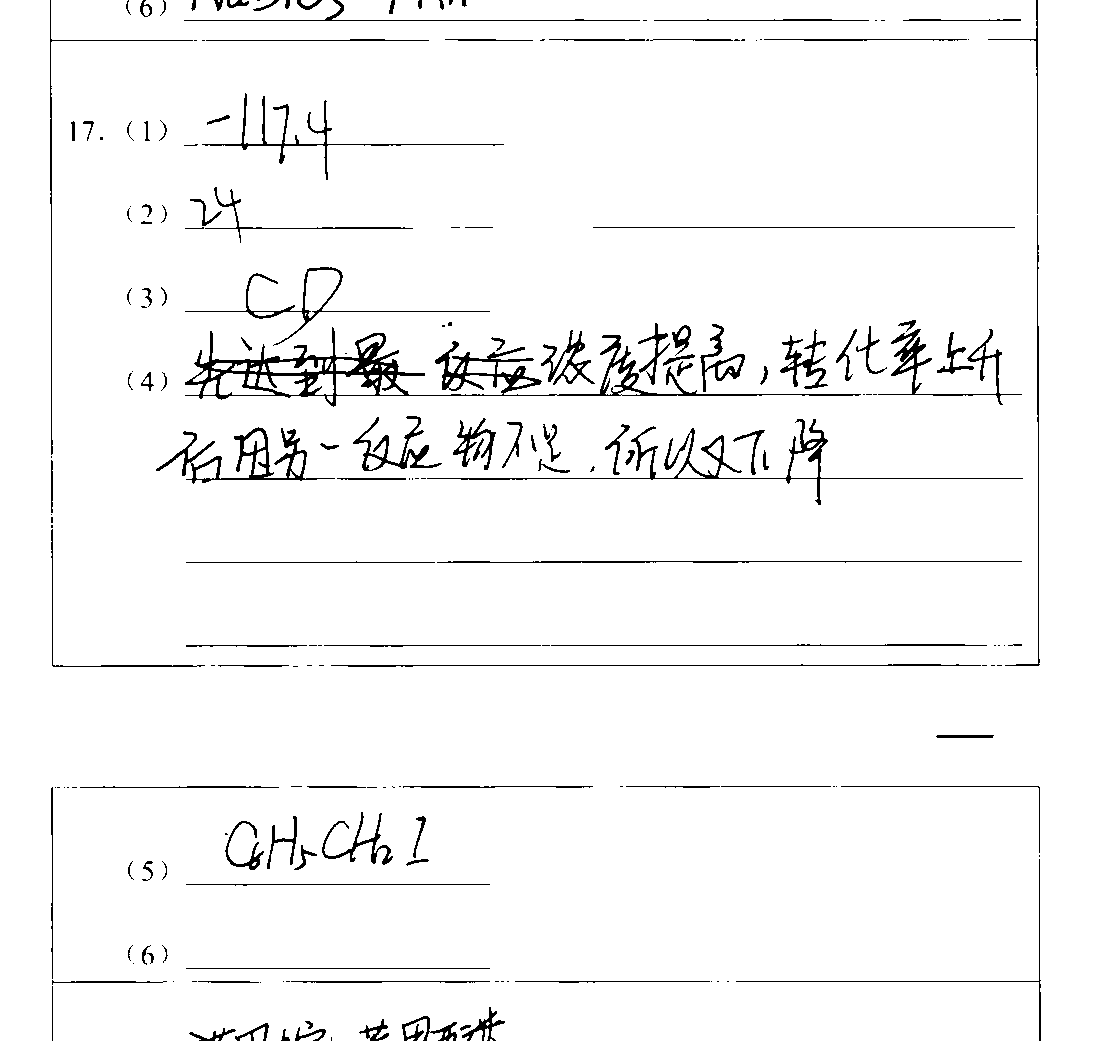 (6)
17. (1) -117.4
(2) 24
(3) CD
(4) 浓度提高，转化率上升
后因另一反应物不足，所以又下降
(5) C6H5CH2I
(6)